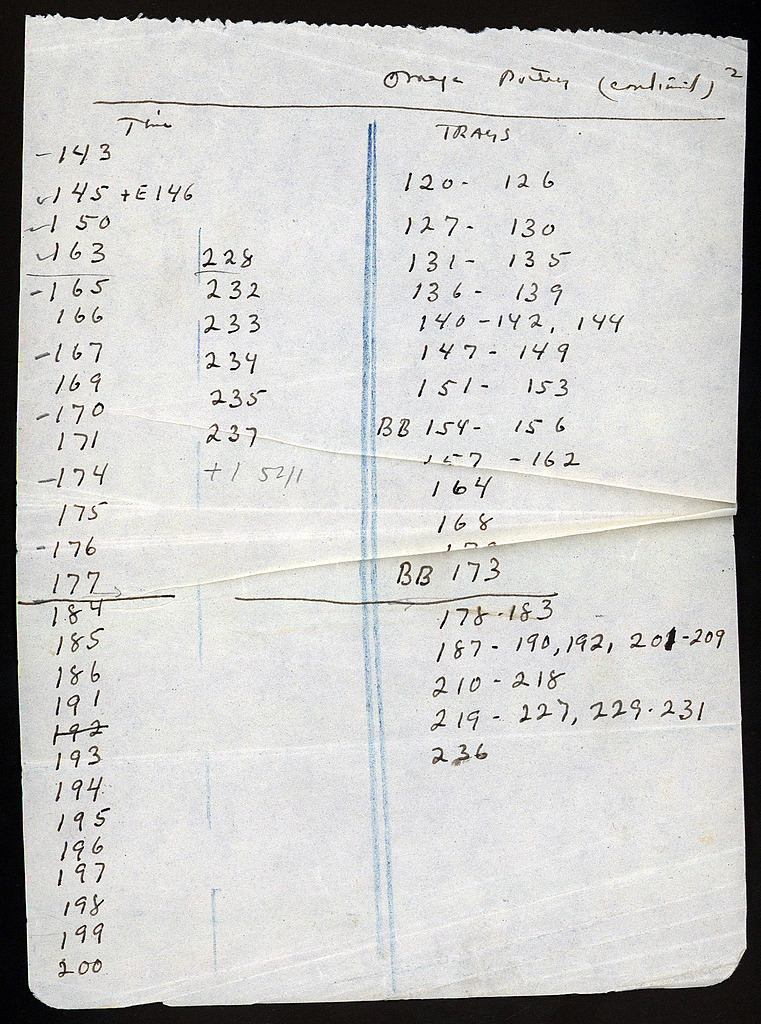 Omega Pottery (continued) 2
Tin
TRAYS
-143
✓145 +E146
-150
✓163
-165
166
-167
169
-170
171
-174
175
-176
177
184
185
186
191
192
193
194
195
196
197
198
199
200
228
232
233
234
235
237
+1
120- 126
127- 130
131- 135
136- 139
140-142, 144
147- 149
151- 153
BB 154- 156
157 -162
164
168
BB 173
178-183
187- 190, 192, 201-209
210-218
219- 227, 229-231
236